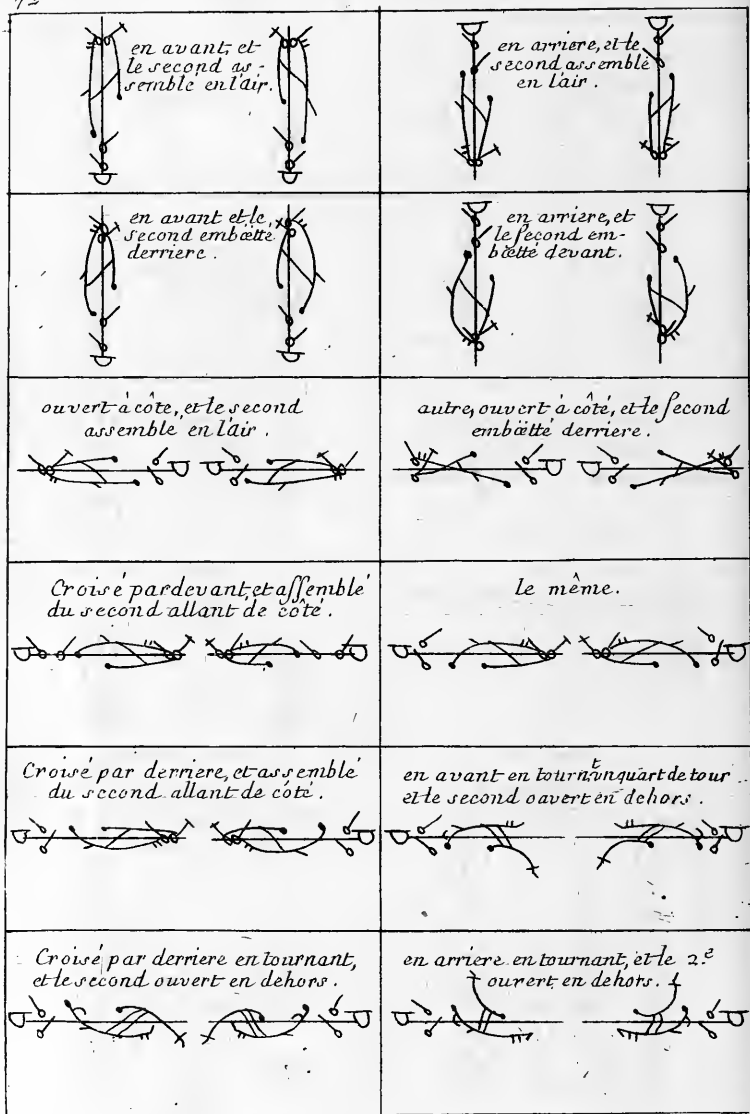 72
en avant, et
le second as-
semble en l'air.
en arriere, et le
second assemblé
en l'air.
en avant et le,
second emboetté
derriere.
en arriere, et
le second em-
boetté devant.
ouvert à côte, et le second
assemble en l'air.
autre, ouvert à côté, et le second
emboetté derriere.
Croisé par devant, et assemblé
du second allant de côté.
le même.
Croisé par derriere, et assemblé
du second allant de côté.
en avant en tourn.t un quart de tour
et le second ouvert en dehors.
Croisé par derriere en tournant,
et le second ouvert en dehors.
en arriere en tournant, et le 2.e
ouvert en dehors.